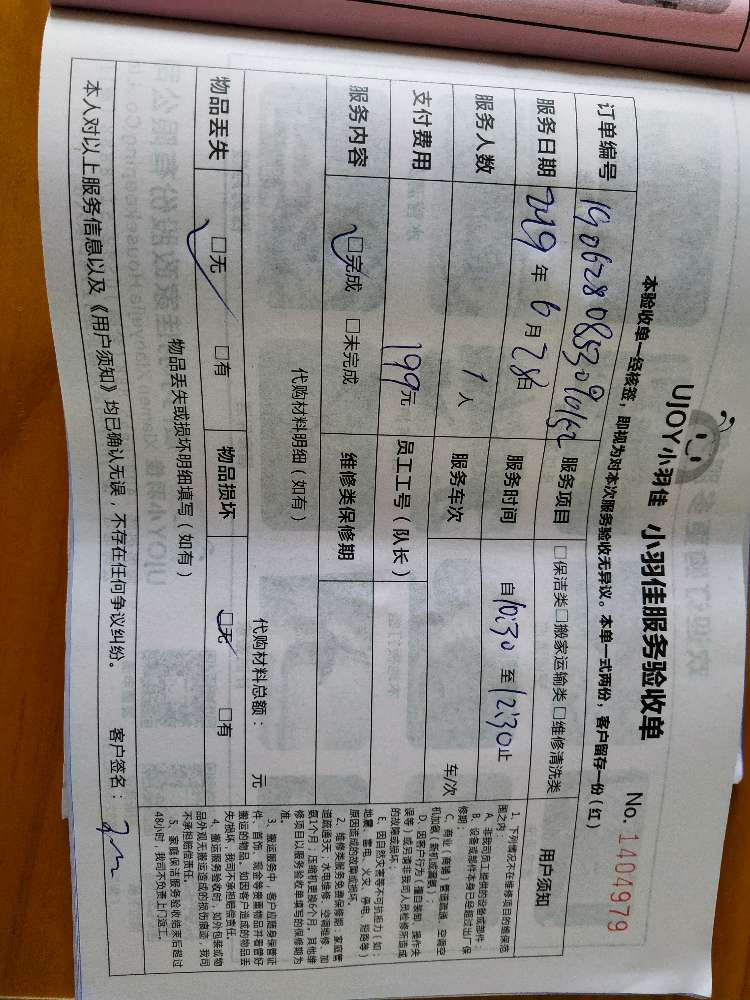 UJOY小羽佳 小羽佳服务验收单
No. 1404979
本验收单一经核签，即视为对本次服务验收无异议。本单一式两份，客户留存一份（红）
订单编号 服务项目 □保洁类□搬家运输类□维修清洗类
服务日期 2019年6月28日 服务时间 自10:30至12:30止
服务人数 1人 服务车次 车/次
支付费用 199元 员工工号（队长）
服务内容 □完成 □未完成 维修类保修期
代购材料明细（如有）
代购材料总额： 元
物品丢失 □无 □有 物品损坏 □无 □有
物品丢失或损坏明细填写（如有）
本人对以上服务信息以及《用户须知》均已确认无误，不存在任何争议纠纷。 客户签名：
用户须知
1、下列情况不在维修项目的维保范
围之内：
A、非我司员工提供的设备或部件；
B、设备或部件本身已经超过出厂保
修期；
C、商业（商铺）管道疏通、空调空
机加氟（新机或漏氟）；
D、因客户行为（擅自装卸、操作失
误等）或邀请非我司人员检修所造成
的故障或损坏；
E、因自然灾害等不可抗拒力（如：
地震、雷电、火灾、停电、短路等）
原因造成的故障或损坏。
2、维修类服务免费保修期：家庭管
道疏通3天、水电维修、空调维修、加
氨1个月，压缩机更换6个月，其他维
修项目以服务验收单填写的保修期为
准。
3、搬运服务中，客户应随身保管证
件、首饰、现金等贵重物品并看管好
搬运的物品。如因客户造成的物品丢
失/损坏，我司不承担赔偿责任。
4、搬运服务验收时，如外包装或物
品外观无搬运造成的损伤痕迹，我司
不承担赔偿责任。
5、家庭保洁服务验收结束后超过
48小时，我司不负责上门返工。